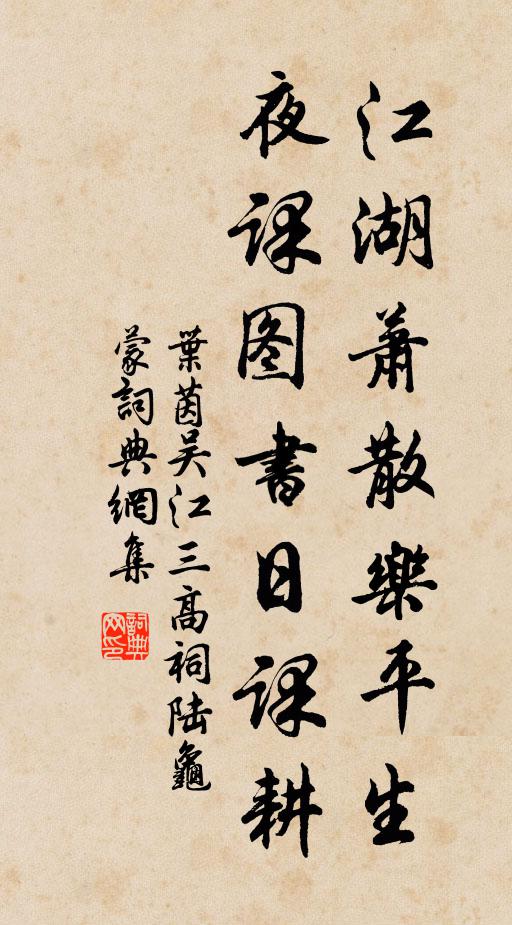 江湖蕭散樂平生
夜課图書日課耕
葉茵吴江三高祠陆龜
蒙詞典網集
詞典
网印